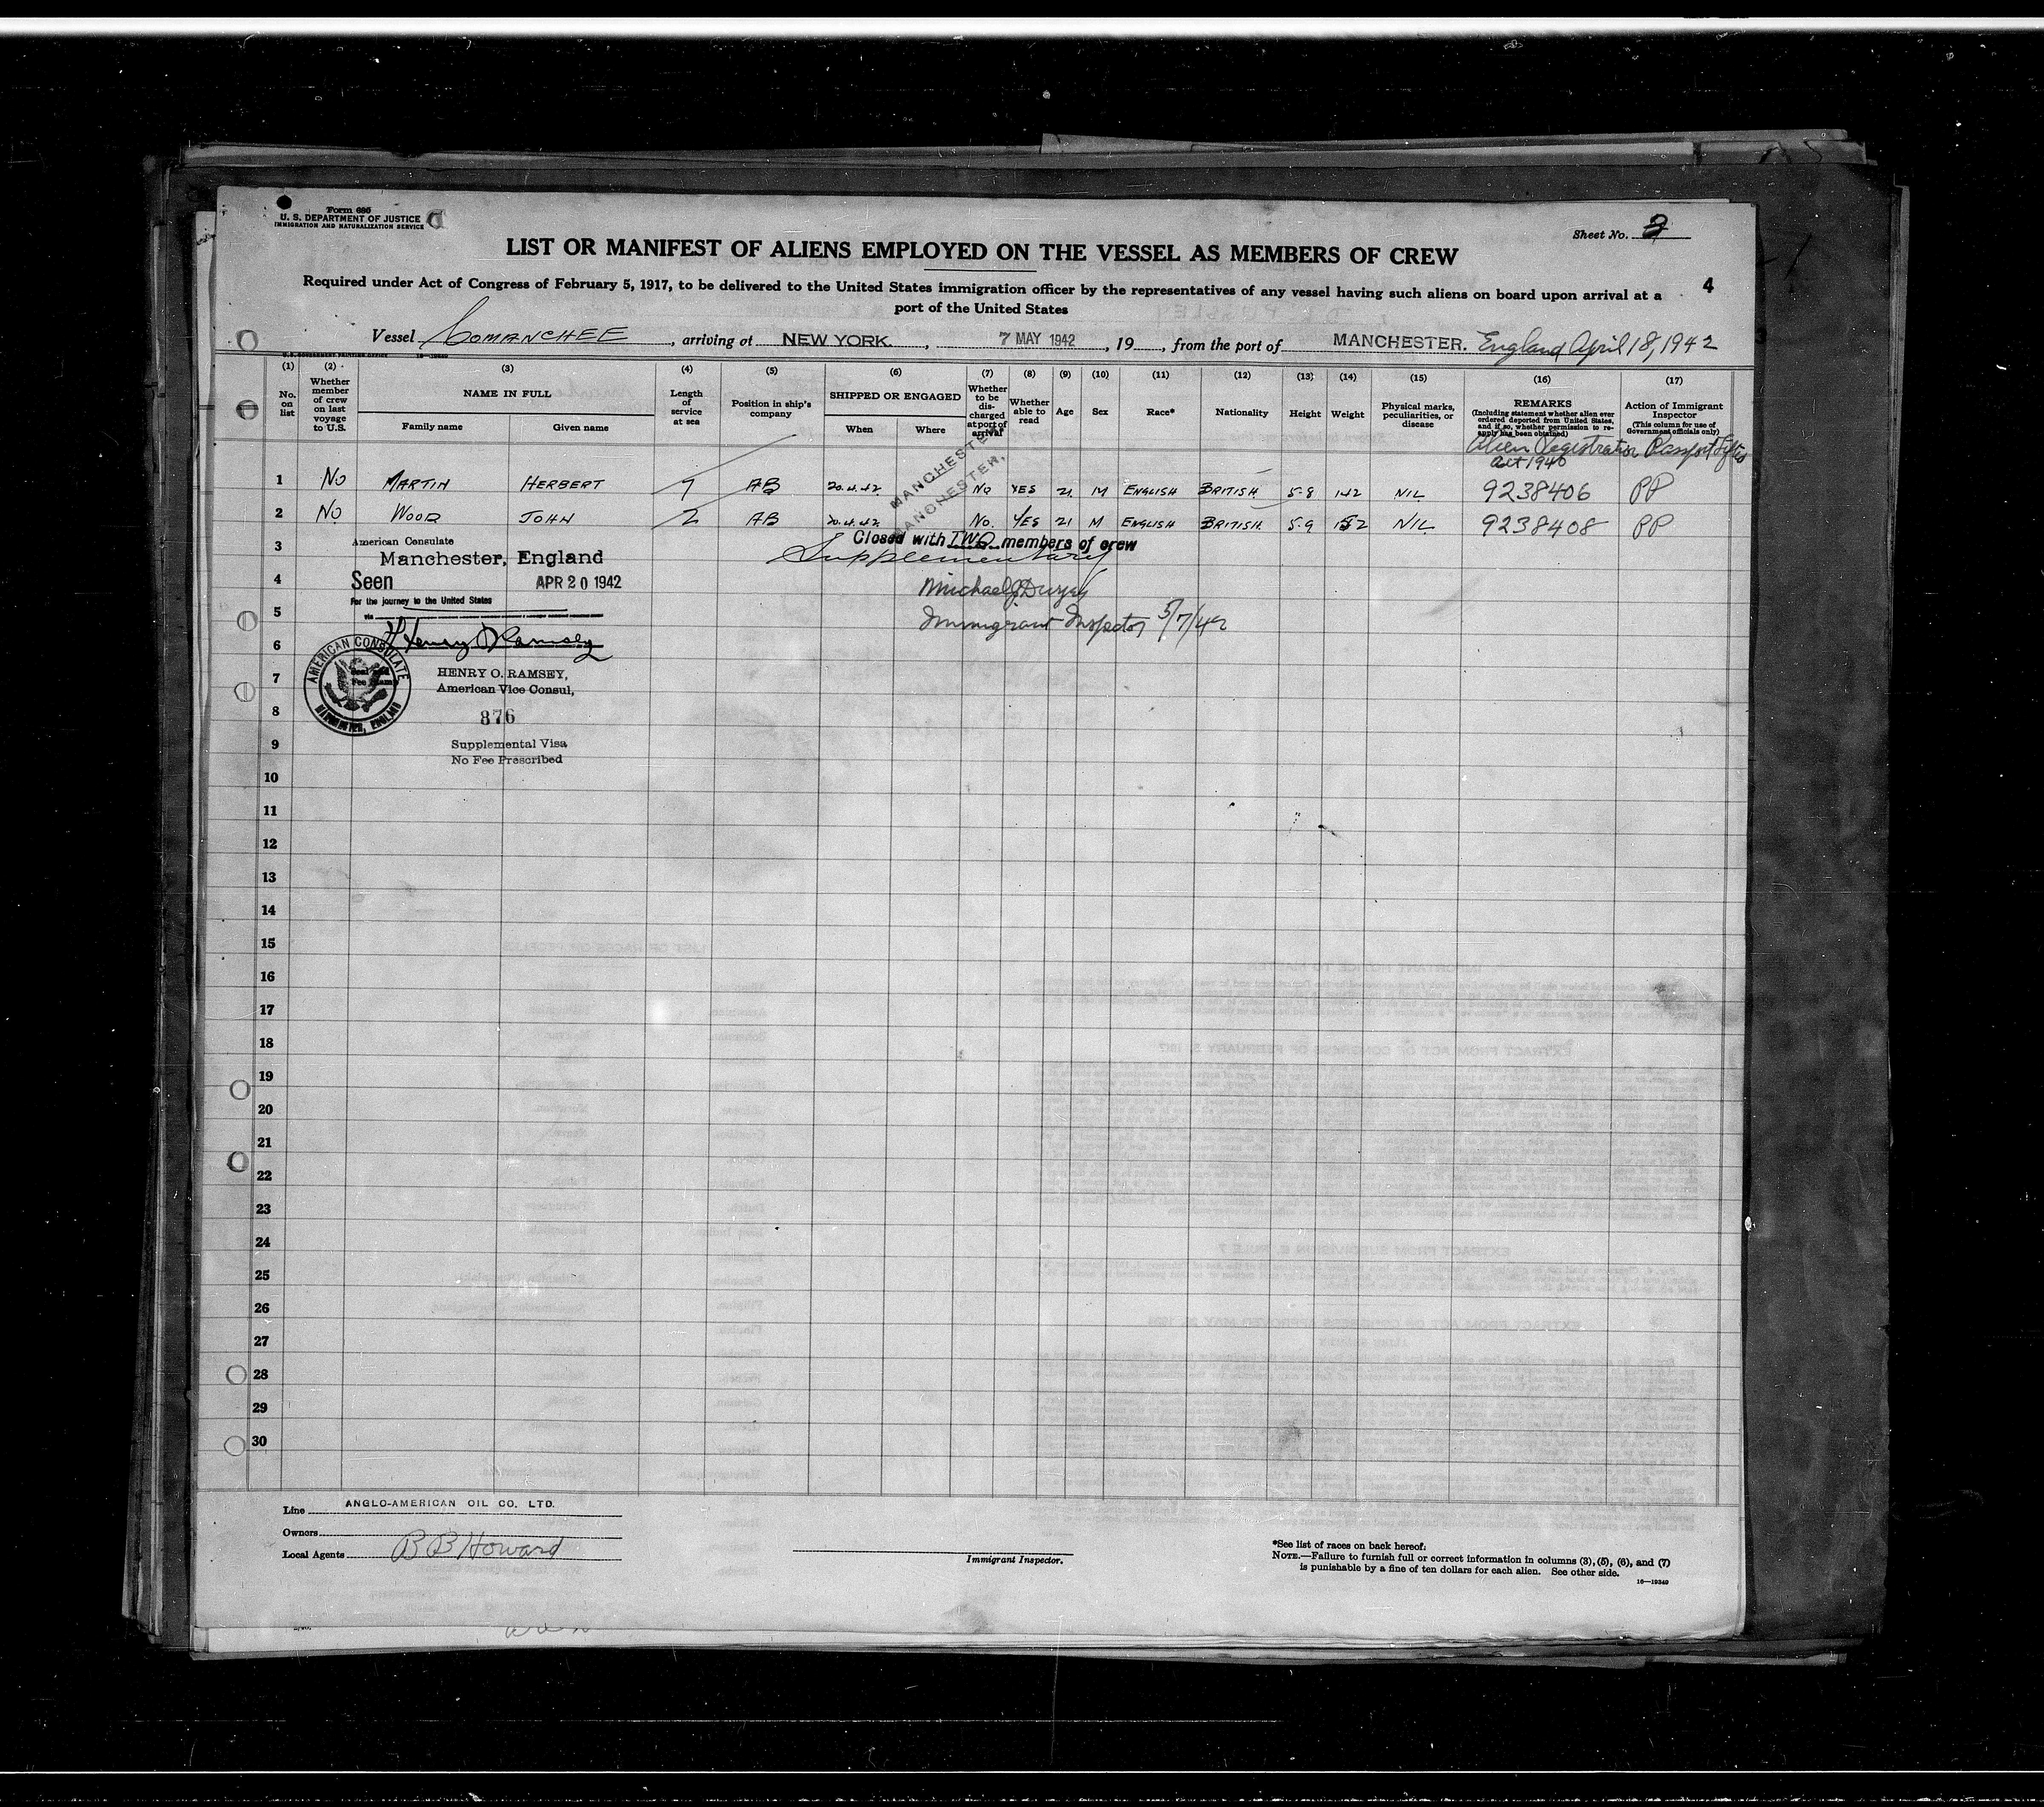 Form 680
U. S. DEPARTMENT OF JUSTICE
IMMIGRATION AND NATURALIZATION SERVICE
Sheet No.
LIST OR MANIFEST OF ALIENS EMPLOYED ON THE VESSEL AS MEMBERS OF CREW
Required under Act of Congress of February 5, 1917, to be delivered to the United States immigration officer by the representatives of any vessel having such aliens on board upon arrival at a
port of the United States
4
Vessel COMANCHEE, arriving at NEW YORK, 7 MAY 1942, 19, from the port of MANCHESTER. England April 18, 1942
(1) (2) (3) (4) (5) (6) (7) (8) (9) (10) (11) (12) (13) (14) (15) (16) (17)
No. on list
Whether member of crew on last voyage to U.S.
NAME IN FULL
Family name
Given name
Length of service at sea
Position in ship's company
SHIPPED OR ENGAGED
When
Where
Whether to be discharged at port of arrival
Whether able to read
Age
Sex
Race*
Nationality
Height
Weight
Physical marks, peculiarities, or disease
REMARKS
(Including statement whether alien ever ordered deported from United States, and if so, whether permission to reapply has been obtained)
Action of Immigrant Inspector
(This column for use of Government officials only)
Alien Registration
Act 1940
Passport
1 No MARTIN HERBERT 7 AB 20.4.42 MANCHESTER. No YES 21 M ENGLISH BRITISH 5-8 142 NIL 9238406 PP
2 No WOOD JOHN 2 AB 20.4.42 MANCHESTER. No. YES 21 M ENGLISH BRITISH 5-9 152 NIL 9238408 PP
3
Closed with TWO members of crew
Supplementary
American Consulate
Manchester, England
4
Seen APR 20 1942
For the journey to the United States
via
Michael J Duryea
5
Immigrant Inspector 5/7/42
6
Henry O Ramsey
AMERICAN CONSULATE
MANCHESTER, ENGLAND
7
HENRY O. RAMSEY,
American Vice Consul,
8
876
9
Supplemental Visa
No Fee Prescribed
10
11
12
13
14
15
16
17
18
19
20
21
22
23
24
25
26
27
28
29
30
Line ANGLO-AMERICAN OIL CO. LTD.
Owners
Local Agents B B Howard
Immigrant Inspector.
*See list of races on back hereof.
NOTE.—Failure to furnish full or correct information in columns (3), (5), (6), and (7)
is punishable by a fine of ten dollars for each alien. See other side.
16—19349